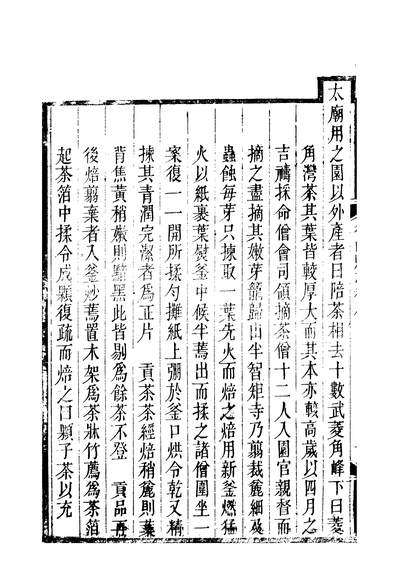 太廟用之園以外產者曰陪茶相去十數武菱角峰下曰菱
角灣茶其葉皆較厚大而其本亦較高歲以四月之
吉禱採命僧會司領摘茶僧十二人入園官親督而
摘之盡摘其嫩芽籠歸山半智矩寺乃剪裁麄細及
蟲蝕每芽只揀取一葉先火而焙之焙用新釜燃猛
火以紙裹葉熨釜中候半蔫出而揉之諸僧圍坐一
案復一一開所揉勻攤紙上弸於釜口烘令乾又精
揀其青潤完潔者為正片　貢茶茶經焙稍麄則葉
背焦黃稍嫩則黯黑此皆剔為餘茶不登　貢品再
後焙剪棄者入釜炒蔫置木架為茶牀竹薦為茶箔
起茶箔中揉令成顆復疏而焙之曰顆子茶以充